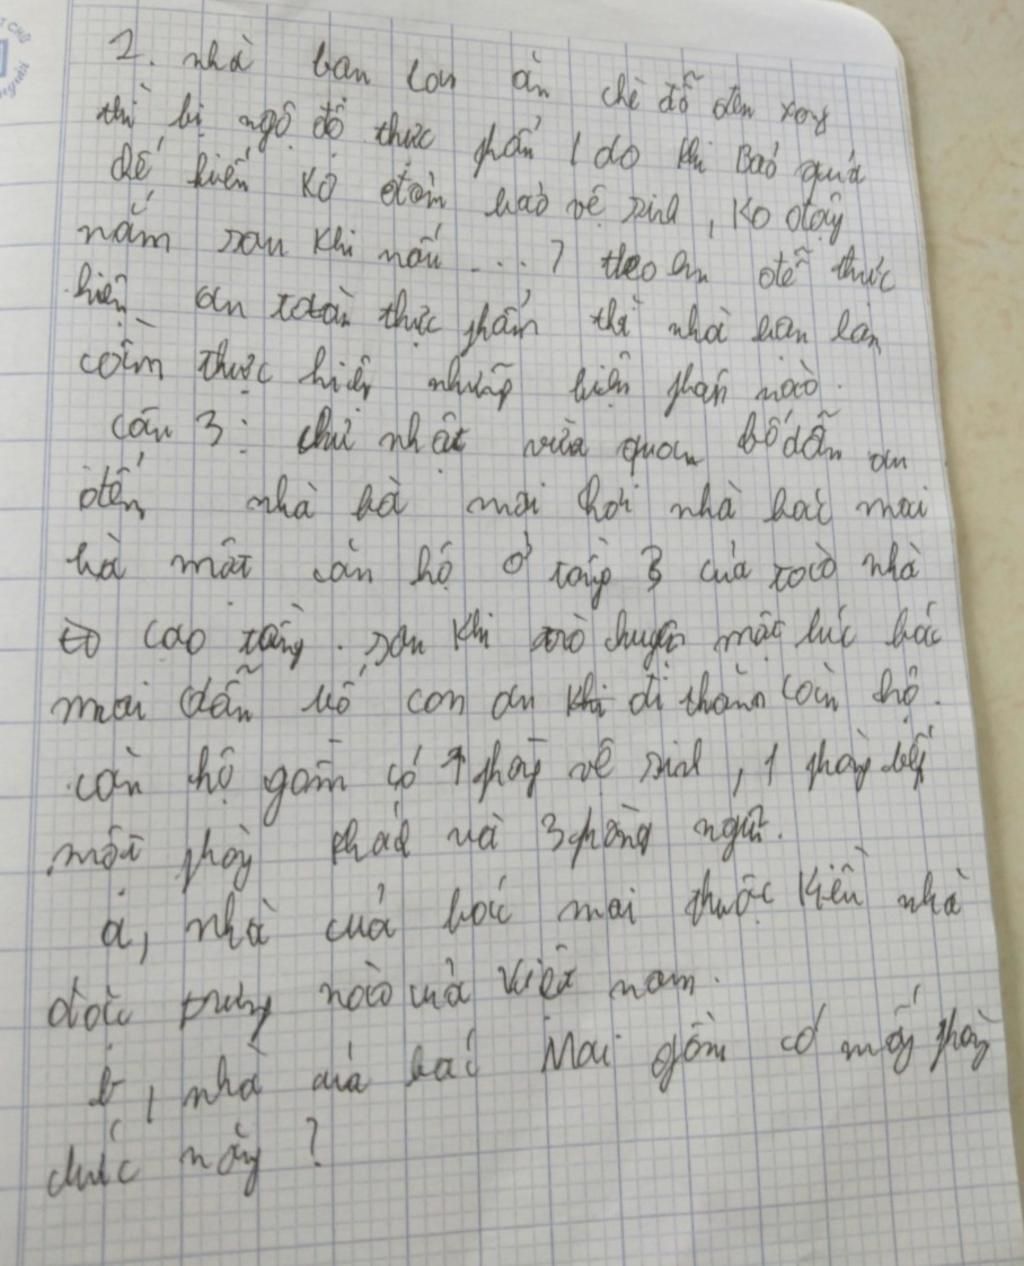 2. nhà bạn Lan ăn chè đỗ đen xong
thì bị ngộ độ thực phẩn (do khi Baỏ quả
dế biến Ko đảm bảo vệ sinh, Ko đậy
nắm sau khi nấu ....) theo em để thực
hiện an toàn thực phẩn thì nhà bạn Lan
cầm thực hiện những biện pháp nào.
câu 3: chủ nhật vừa quan bố dẫn an
đến nhà bà mai chơi nhà bác mai
là một căn hộ ở tầng 3 của toà nhà
cao tầng. sau khi trò chuyện một lúc bác
mai dẫn bố con an đi thăm căn hộ.
căn hộ gồm có 1 phòng vệ sinh, 1 phòng bếp
một phòng khách và 3 phòng ngủ.
a, nhà của bác mai thuộc kiểu nhà
đặc trưng nào của Việt nam.
b, nhà của bác Mai gồm có mấy phòng
chức năng?